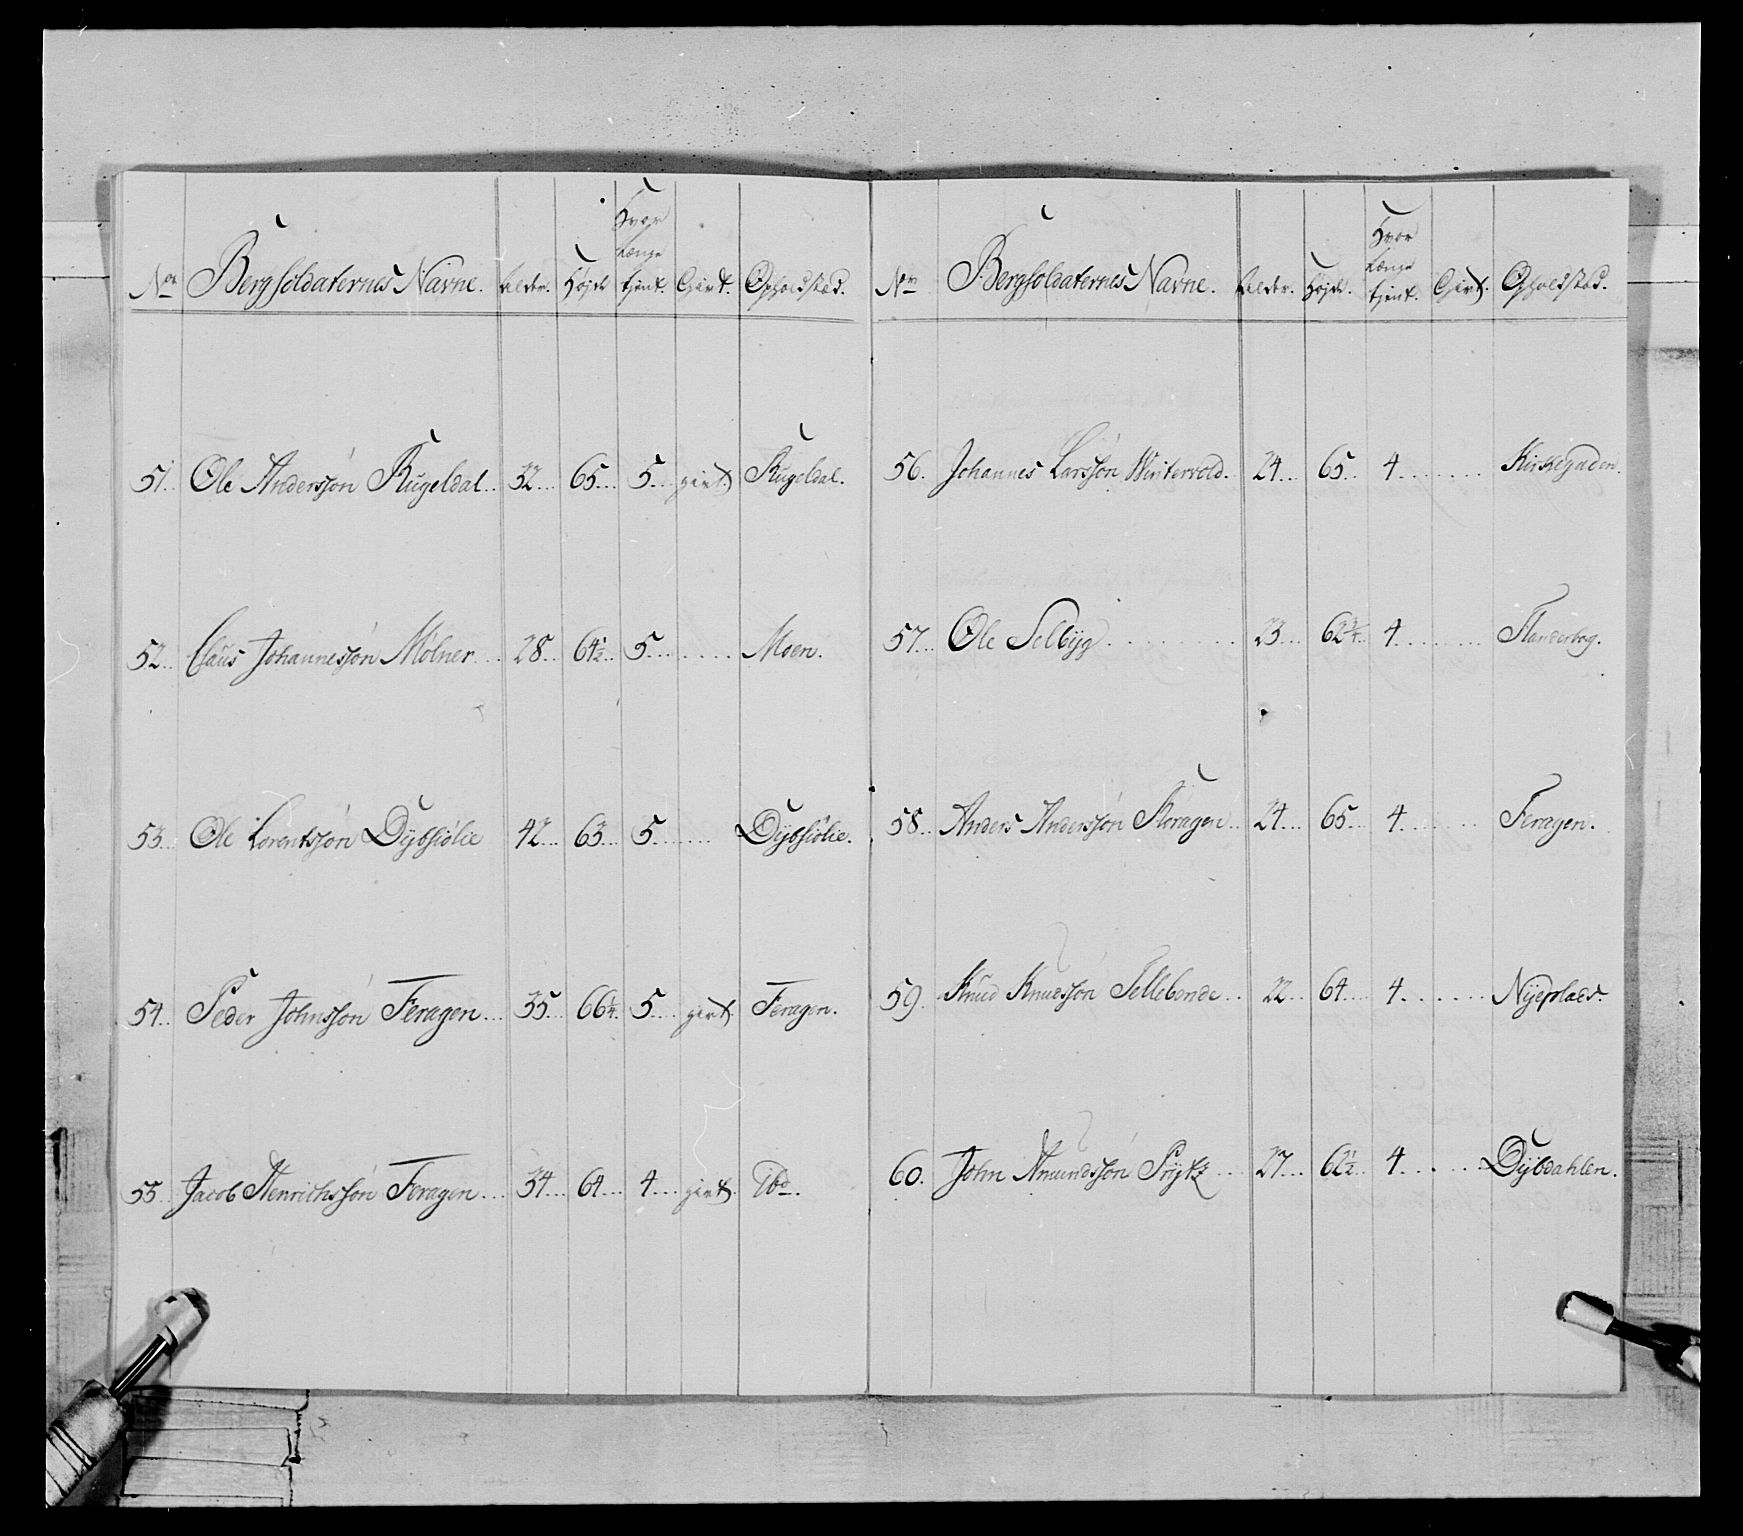 No Bergsoldaternes Navne. Alder. Højde Hvor Længe tjent. Givt. Opholdstæd.
51. Ole Anderssøn Rugeldal. 32. 65. 5. givt. Rugeldal.
52. Claus Johannessøn Mølner. 28. 64½. 5. Moen.
53. Ole Lorentssøn Dybsiølie 42. 63. 5. Dybsiølie.
54. Peder Johnssøn Feragen. 35. 66¼. 5. givt. Feragen.
55. Jacob Henrichssøn Feragen. 34. 64. 4. givt. Ibd.
No Bergsoldaternes Navne. Alder. Højde. Hvor Længe tjent. Givt. Opholdstæd.
56. Johannes Larssøn Wintervold. 24. 65. 4. Kirkegaden.
57. Ole Selbyg. 23. 62¾. 4. Flanderbog.
58. Anders Anderssøn Feragen. 24. 65. 4. Feragen.
59. Knud Knudssøn Tellebonde. 22. 64. 4. Nyeplads.
60. John Amundssøn Prytz. 27. 62½. 4. Dybdahlen.